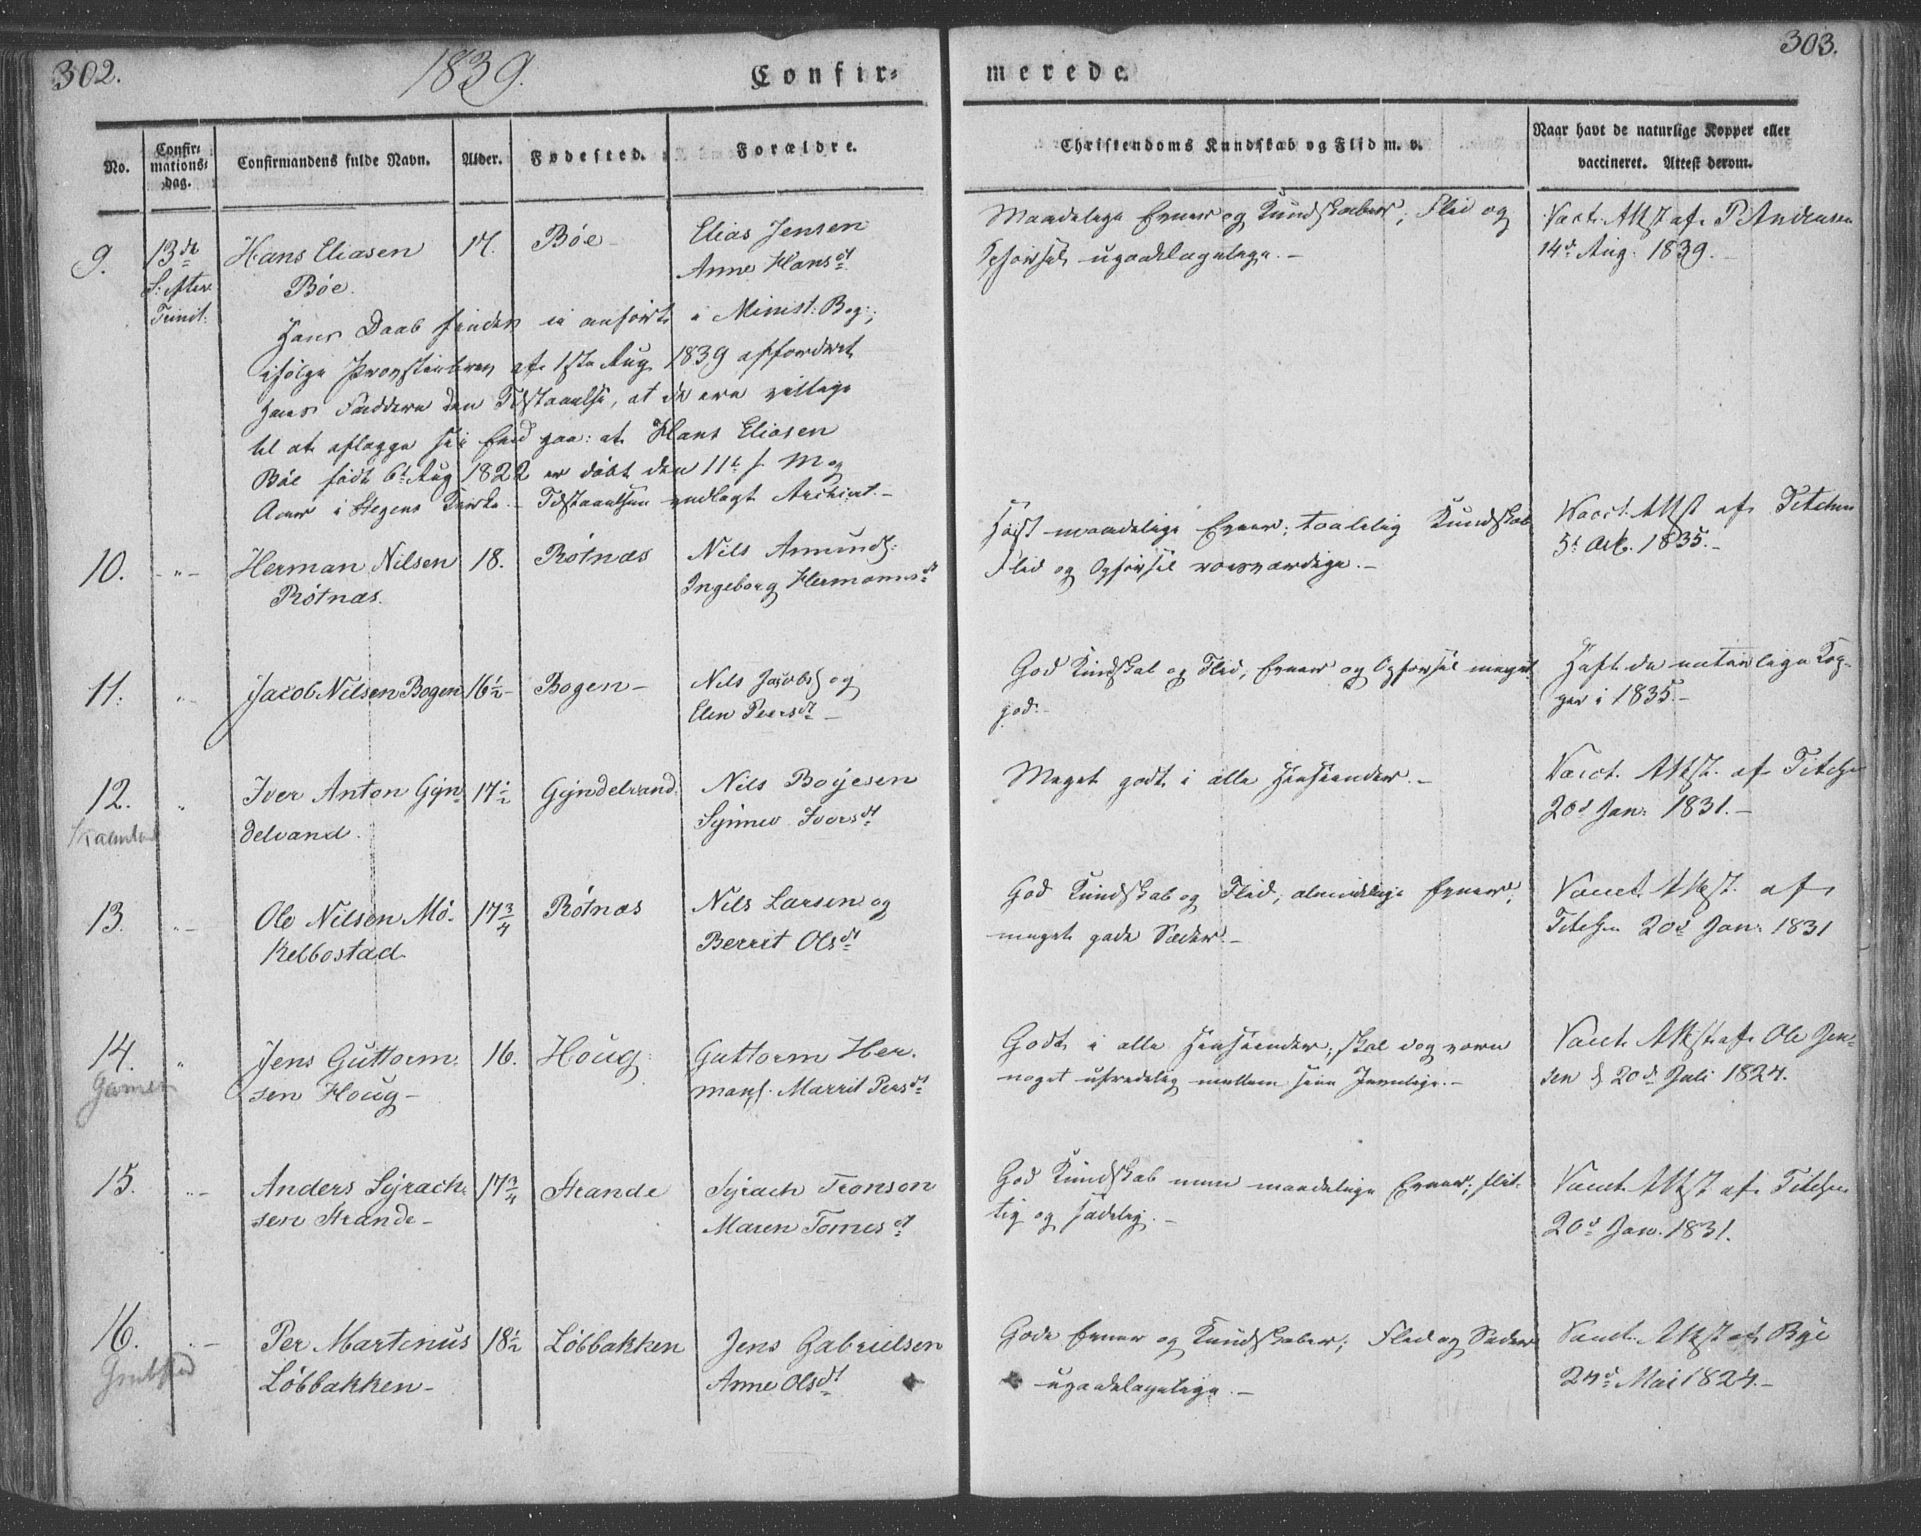 302.
1839.
Confir-
merede.
303.
No.
Confir-
mations-
dag.
Confirmandens fulde Navn.
Alder.
Fødested.
Forældre.
Christendoms Kundskab og Flid m. v.
Naar havt de naturlige Kopper eller
vaccineret. Attest derom.
9.
13de
S: efter
Trinit:
Hans Eliasen
Bøe.
17.
Bøe -
Elias Jensen
Anne Hansdt
Maadelige Evner og Kundskaber, Flid og
Opførsel upaaklagelige. -
Vacc. Attst af P. Andersen
14d Aug. 1839. -
Hans Daab findes ei anført i Minist: Bog:,
ifølge Provstens af 1ste Aug 1839 affordret
hans Faddere den Tilstaaelse, at de ere villige
til at aflægge sin Eed paa: at Hans Eliasen
Bøe født 6t Aug 1822 er døbt den 11t s. M og
Aar i Stegens Kirke. - Tilstaaelsen vedlagt Archivet. -
10.
- " -
Herman Nilsen
Røtnæs.
18.
Røtnæs
Nils Amunds:
Ingeborg Hermansdt
Høist maadelige Evner; taalelig Kundskab
Flid og Opførsel roesværdige. -
Vacct. Attst af Titchen
5t Okt. 1835. -
11.
" -
Jacob Nilsen Bogen
16½ -
Bogen -
Nils Jacobs og
Elen Peersdt -
God Kundskab og Flid, Evner og Opførsel meget
god. -
Haft de naturlige Kop-
per i 1835. -
12.
"
Iver Anton Gyn-
delvand.
17½
Gyndelvand.
Nils Boyesen
Synnev Iversdt
Meget godt i alle Henseender. -
Vacct. Attst. af Titchen
20d Jan. 1831. -
13.
" -
Ole Nilsen Mø-
kelbostad
17¾
Røtnæs
Nils Larsen og
Berret Olsdt
God Kundskab og Flid, almindelige Evner,
meget gode Sæder. -
Vacct. Attst. af
Titchen 20d Jan. 1831
14.
"
Jens Guttorm-
sen Houg -
16.
Houg.
Guttorm Her-
mans. Marrit Persdt
Godt i alle Henseender; skal dog være
noget ufredelig mellem sine Jevnlige. -
Vacct. Attst af Ole Jen-
sen d 20d Juli 1824.
15.
" -
Anders Syrach-
sen Strande -
17¾
Strande
Syrach Tronson
Maren Tomesdt
God Kundskab men maadelige Evner; flit-
tig og sædelig. -
Vacct. Attst af Titchen
20d Jan. 1831.
16.
" -
Per Martinus
Løbbakken -
18½
Løbbakken
Jens Gabrielsen
Anne Olsdt
Gode Evner og Kundskaber; Flid og Sæder
upaaklagelige. -
Vacct. Attst af Bye
24d Mai 1824. -